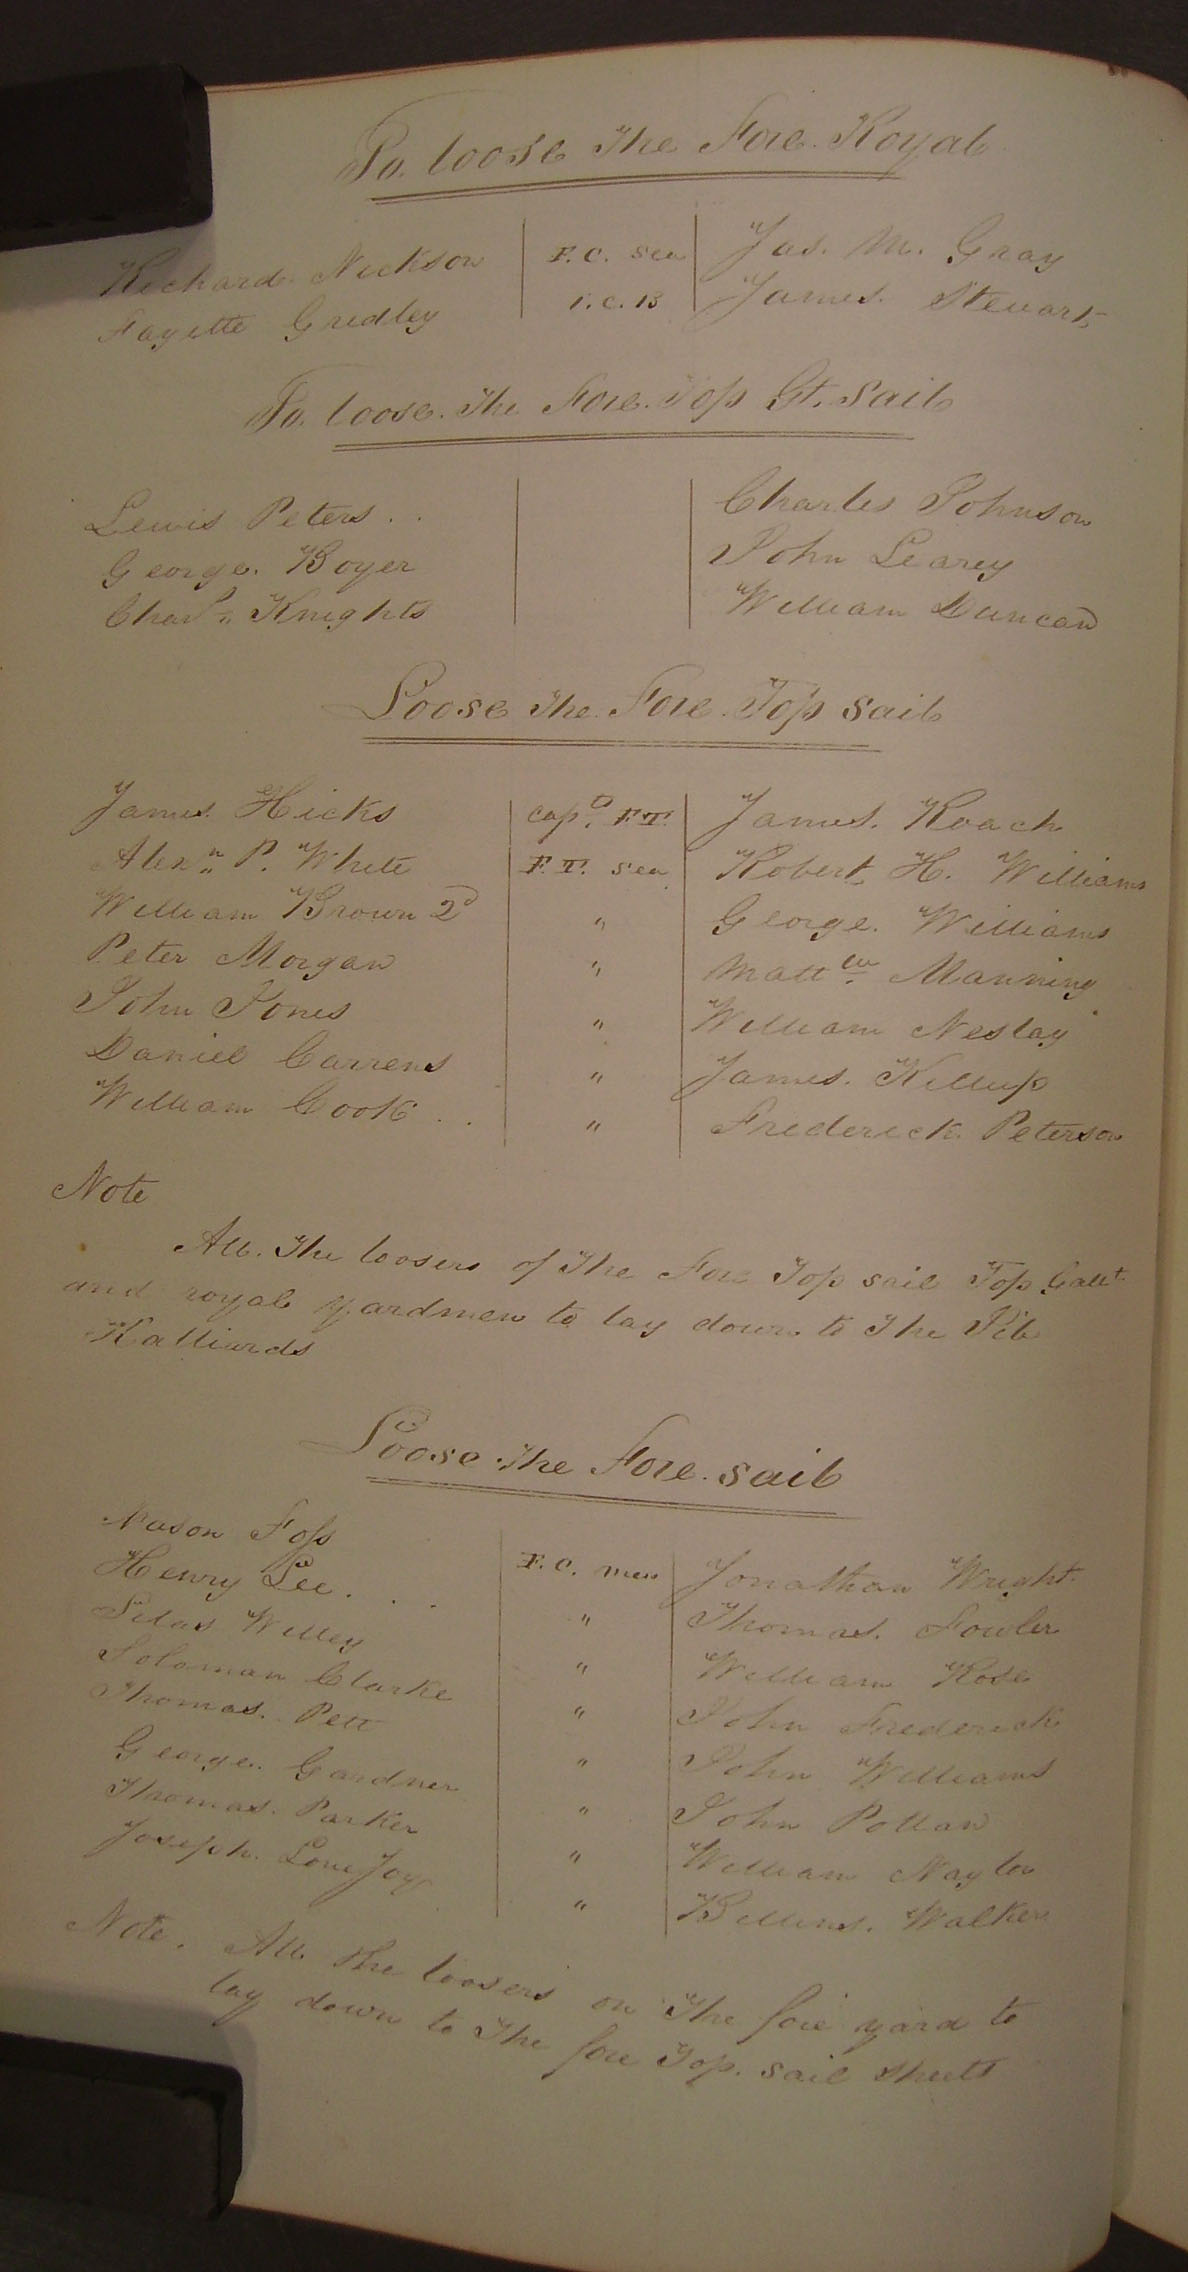 To. loose The Fore. Royal
Richard. Nickson F.C. Sea Jas. M. Gray
Fayette Gridley F.C.B James. Stewart,
To. loose. The Fore. Top Gt. Sail
Lewis Peters . . Charles Johnson
George. Boyer John Learey
Chas. Knights William Duncan
Loose The. Fore. Top Sail
James. Hicks Capt. F.T. James. Roach
Alexr. P. White F.T. Sea Robert. H. Williams
William Brown 2d " George. Williams
Peter Morgan " Mattew. Manning
John Jones " William Neslay
Daniel Carrens " James. Killup
William Cook . . " Frederick. Peterson
Note
All. The loosers of The Fore Top sail Top Gallt
and royal yardmen to lay down to The Jib
Halliards
Loose The Fore. sail
Nason Foss F.C. men Jonathan Wright.
Henry Lee . . . " Thomas. Fowler
Silas Willey " William Rose
Soloman Clarke " John Frederick
Thomas. Pett " John Williams
George. Gardner " John Pollan
Thomas. Parker " William Naylor
Joseph. LoveJoy " Billins. Walker
Note. All The loosers on The fore yard to
lay down to The fore Top. sail sheets